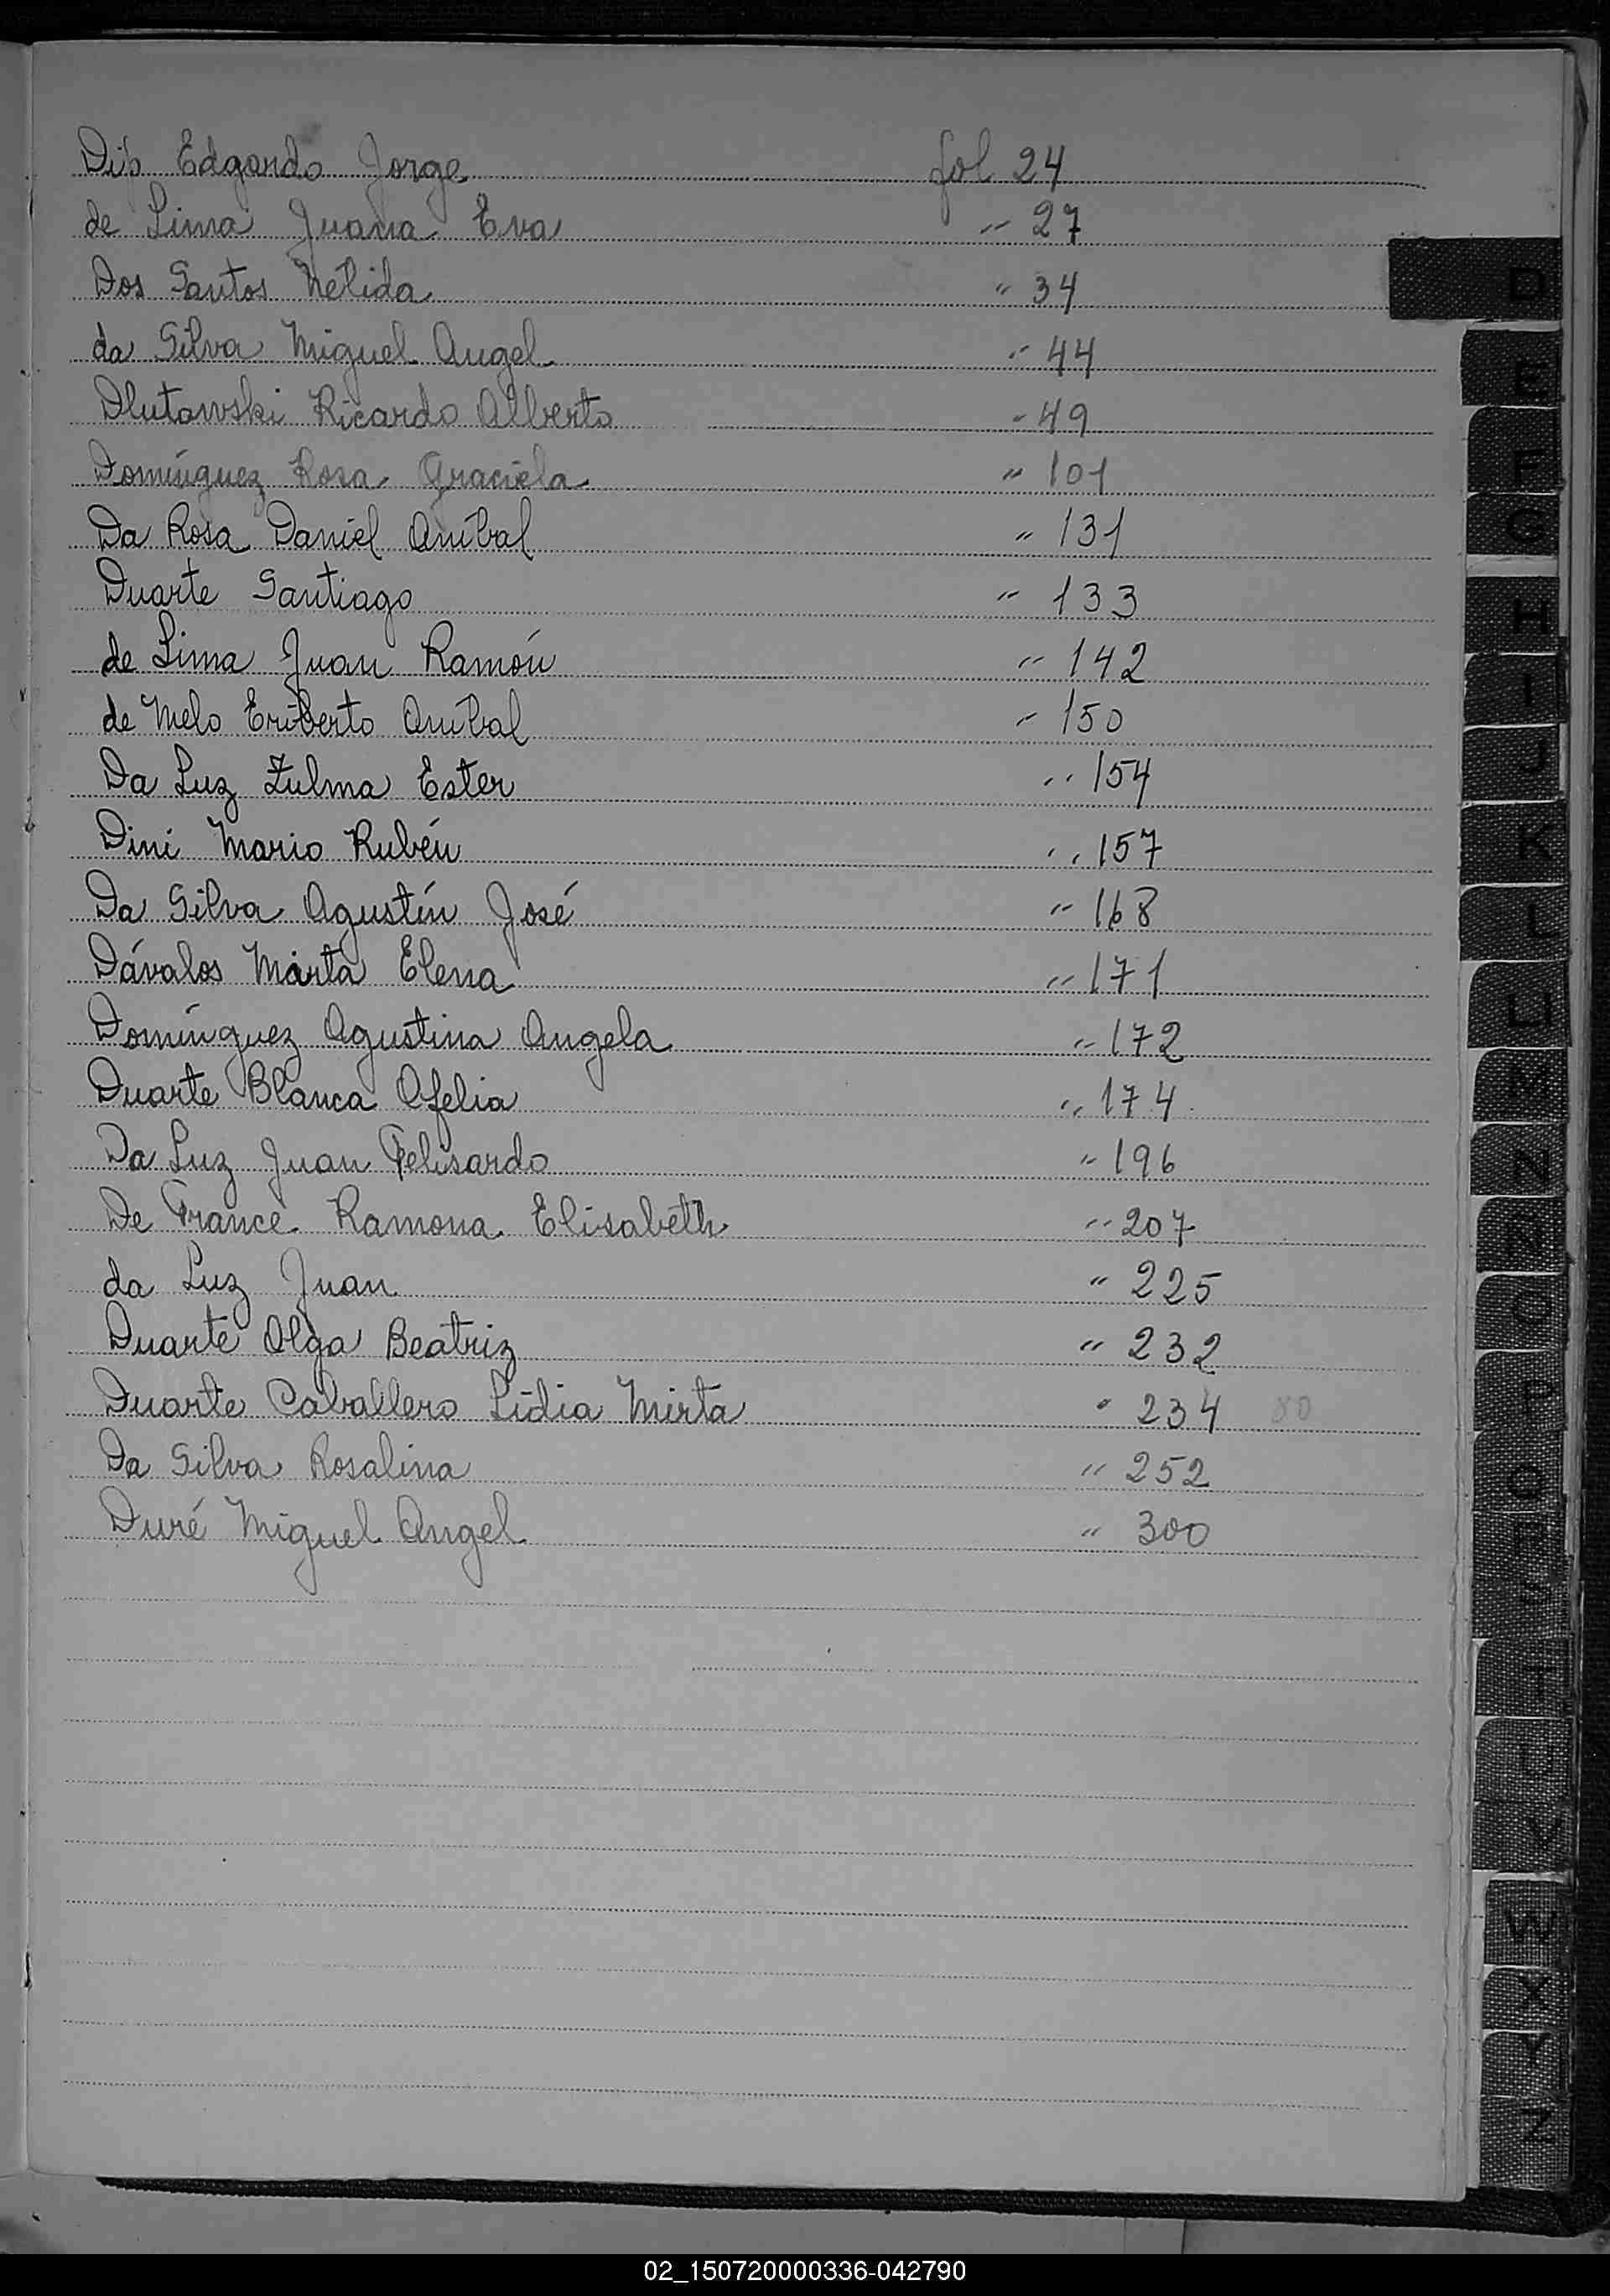 Dip Edgardo Jorge fol 24
de Lima Juana Eva " 27
Dos Santos Nélida " 34
da Silva Miguel Angel " 44
Dlutowski Ricardo Alberto " 49
Domínguez Rosa Graciela " 101
Da Rosa Daniel Aníbal " 131
Duarte Santiago " 133
de Lima Juan Ramón " 142
de Melo Eriberto Aníbal " 150
Da Luz Zulma Ester " 154
Dini Mario Rubén " 157
Da Silva Agustín José " 168
Dávalos Marta Elena " 171
Domínguez Agustina Angela " 172
Duarte Blanca Ofelia " 174
Da Luz Juan Felisardo " 196
De Francé Ramona Elisabeth " 207
da Luz Juan " 225
Duarte Olga Beatriz " 232
Duarte Caballero Lidia Mirta " 234 80
Da Silva Rosalina " 252
Duré Miguel Angel " 300
D
E
F
G
H
I
J
K
L
LL
M
N
Ñ
O
P
Q
R
S
T
U
V
W
X
Y
Z
02_150720000336-042790